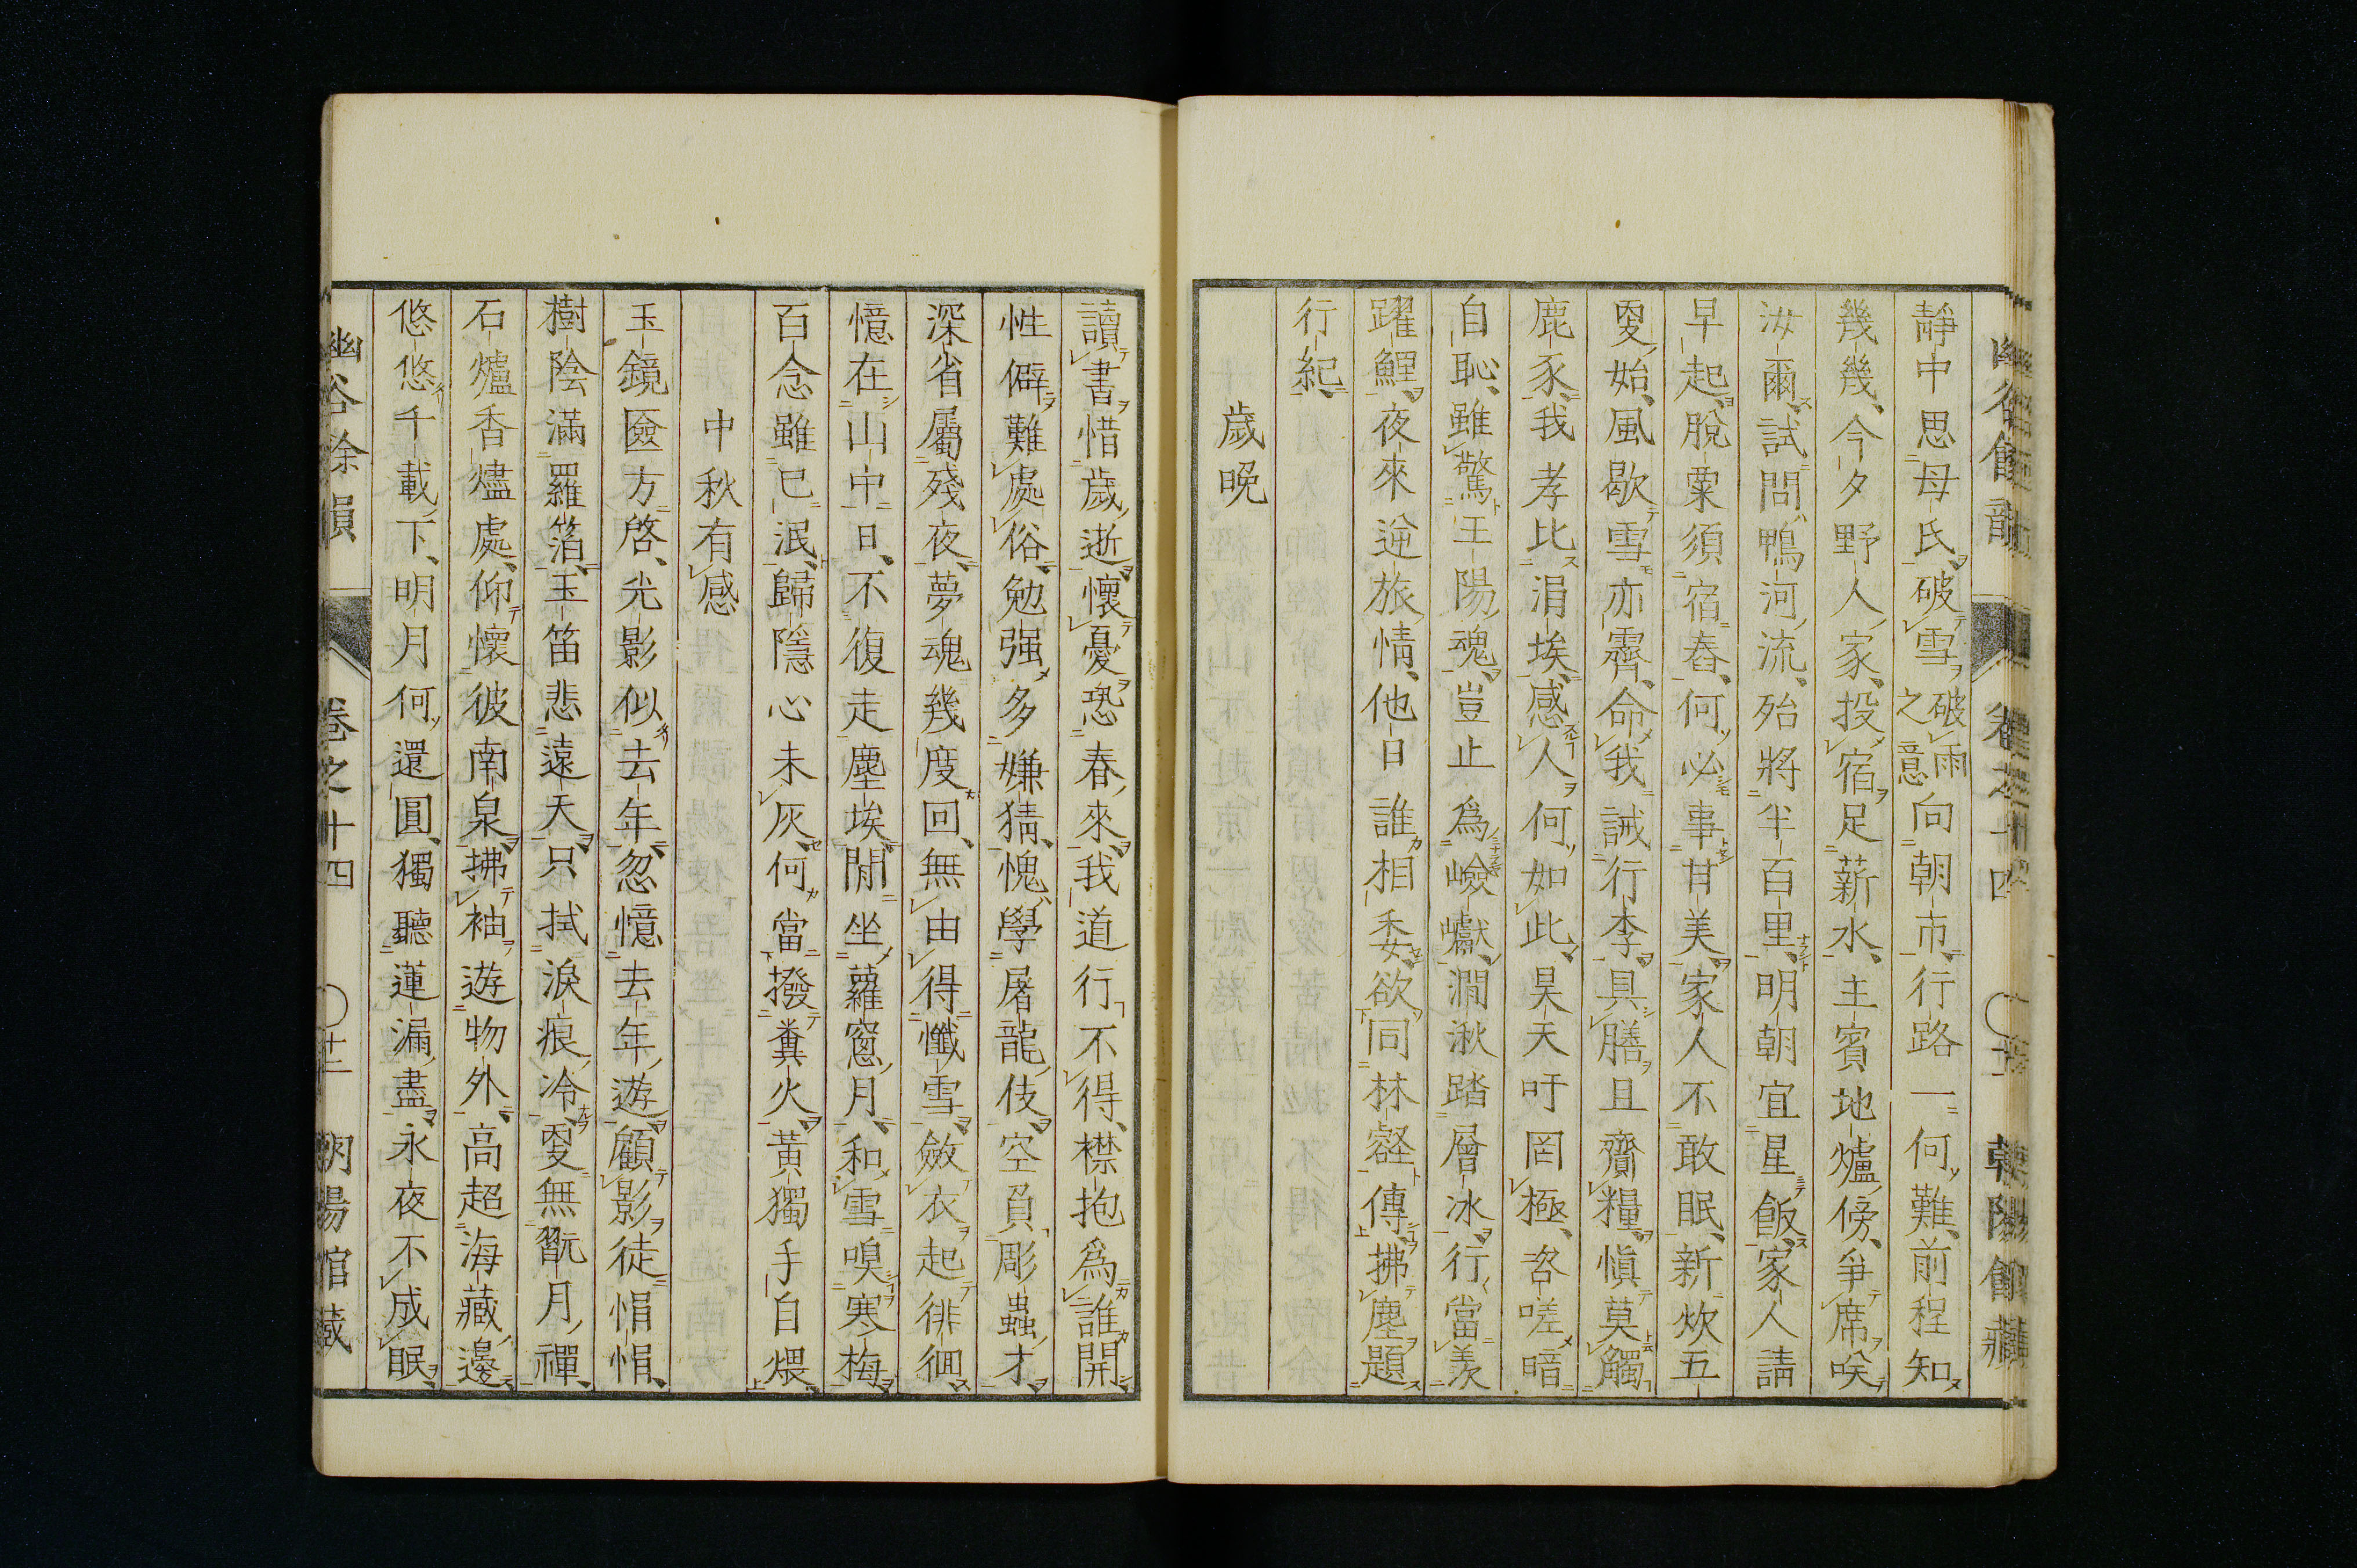 靜中思母氏破雪破雨之意向朝市行路一何難前程知
幾幾今夕野人家投宿足薪水主賓地爐傍爭席咲
汝爾試問鴨河流殆將半百里明朝宜星飯家人請
早起脫粟須宿舂何必事甘美家人不敢眠新炊五
更始風歇雪亦霽命我誡行李具膳且齎糧愼莫觸
鹿豕我孝比涓埃感人何如此昊天吁罔極咨嗟暗
自恥雖驚王陽魂豈止爲嶮巘澗湫踏層冰行當羨
躍鯉夜來逆旅情他日誰相委欲同林壑傳拂塵題
行紀
歲晚
讀書惜歲逝懷憂恐春來我道行不得襟抱爲誰開
性僻難處俗勉强多嫌猜愧學屠龍伎空負彫蟲才
深省屬殘夜夢魂幾度回無由得懺雪斂衣起徘徊
憶在山中日不復走塵埃閒坐蘿窻月和雪嗅寒梅
百念雖已泯歸隱心未灰何當撥糞火黃獨手自煨
中秋有感
玉鏡匳方啓光影似去年忽憶去年遊顧影徒悁悁
樹陰滿羅箔玉笛悲遠天只拭淚痕冷更無翫月禪
石爐香燼處仰懷彼南泉拂袖遊物外高超海藏邊
悠悠千載下明月何還圓獨聽蓮漏盡永夜不成眠
幽谷餘韻 卷之十四 〇十二 朝陽館藏